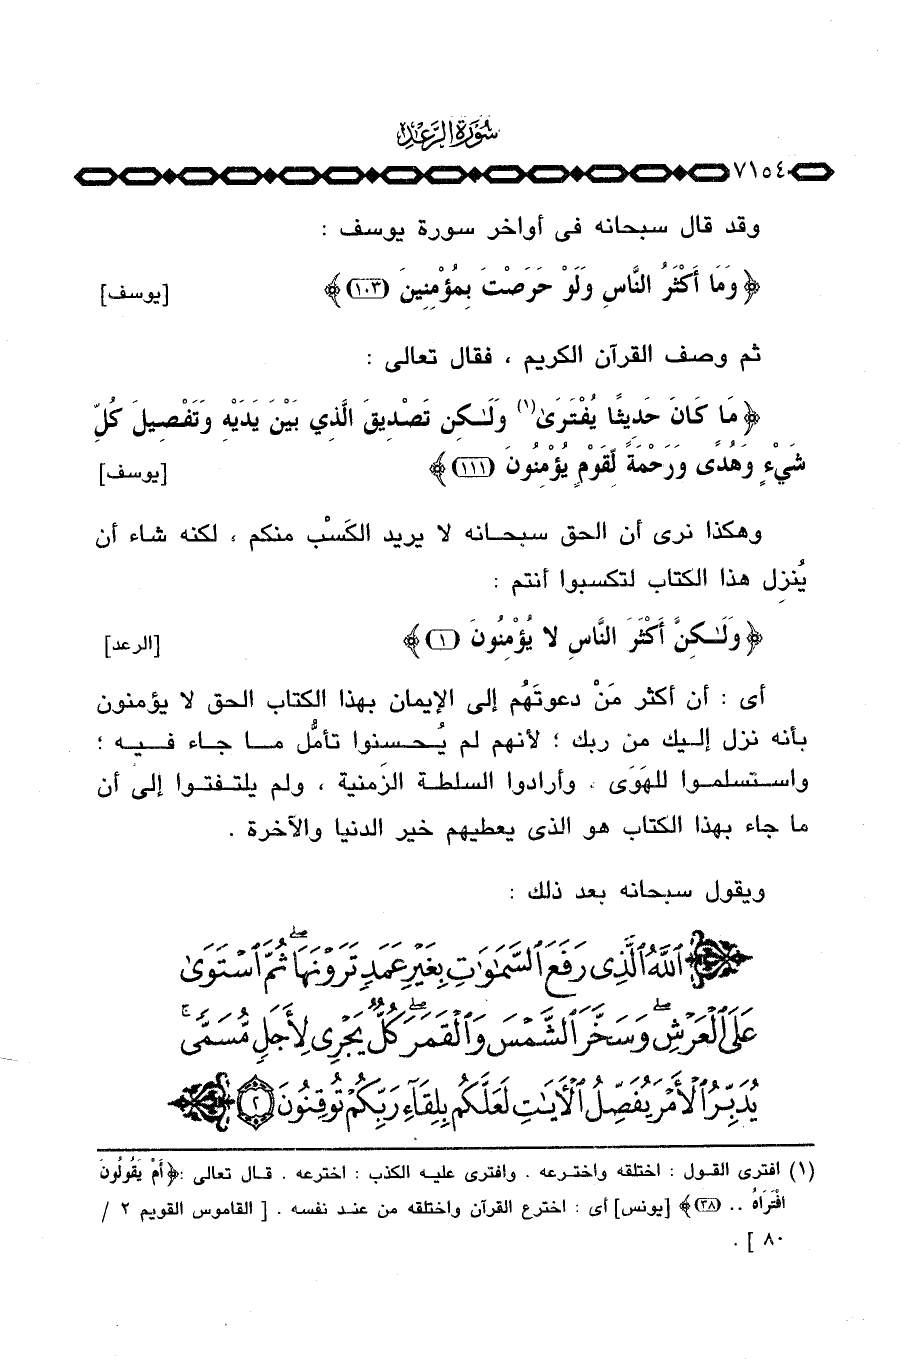 سُورَةُ الرَّعْدِ
٧١٥٤
وقد قال سبحانه فى أواخر سورة يوسف :
﴿ وَمَا أَكْثَرُ النَّاسِ وَلَوْ حَرَصْتَ بِمُؤْمِنِينَ (١٠٣) ﴾ [يوسف]
ثم وصف القرآن الكريم ، فقال تعالى :
﴿ مَا كَانَ حَدِيثًا يُفْتَرَىٰ (١) وَلَـٰكِن تَصْدِيقَ الَّذِي بَيْنَ يَدَيْهِ وَتَفْصِيلَ كُلِّ
شَيْءٍ وَهُدًى وَرَحْمَةً لِّقَوْمٍ يُؤْمِنُونَ (١١١) ﴾ [يوسف]
وهكذا نرى أن الحق سبحـانه لا يريد الكَسْب منكم ، لكنه شاء أن
يُنزِل هذا الكتاب لتكسبوا أنتم :
﴿ وَلَـٰكِنَّ أَكْثَرَ النَّاسِ لا يُؤْمِنُونَ (١) ﴾ [الرعد]
أى : أن أكثر مَنْ دعوتَهُم إلى الإيمان بهذا الكتاب الحق لا يؤمنون
بأنه نزل إلـيك من ربك ؛ لأنهم لم يُحـسنوا تأمُّل مـا جاء فـيـه ؛
واسـتسلمـوا للهَوَى . وأرادوا السلطـة الزمنية ، ولم يلتـفتـوا إلى أن
ما جاء بهذا الكتاب هو الذى يعطيهم خير الدنيا والآخرة .
ويقول سبحانه بعد ذلك :
ٱللَّهُ ٱلَّذِى رَفَعَ ٱلسَّمَـٰوَٰتِ بِغَيْرِ عَمَدٍ تَرَوْنَهَا ۖ ثُمَّ ٱسْتَوَىٰ
عَلَى ٱلْعَرْشِ ۖ وَسَخَّرَ ٱلشَّمْسَ وَٱلْقَمَرَ ۖ كُلٌّ يَجْرِى لِأَجَلٍ مُّسَمًّى ۚ
يُدَبِّرُ ٱلْأَمْرَ يُفَصِّلُ ٱلْآيَـٰتِ لَعَلَّكُم بِلِقَآءِ رَبِّكُمْ تُوقِنُونَ ٢
(١) افترى القـول : اختلقه واختـرعه . وافترى عليـه الكذب : اخترعه . قـال تعالى :﴿ أَمْ يَقُولُونَ
افْتَرَاهُ .. (٣٨) ﴾ [يونس] أى : اخترع القرآن واختلقه من عنـد نفسه . [ القاموس القويم ٢ /
٨٠ ] .